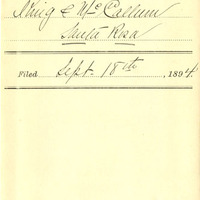 King & McCallum
Santa Rosa
Filed Sept. 18th, 1894